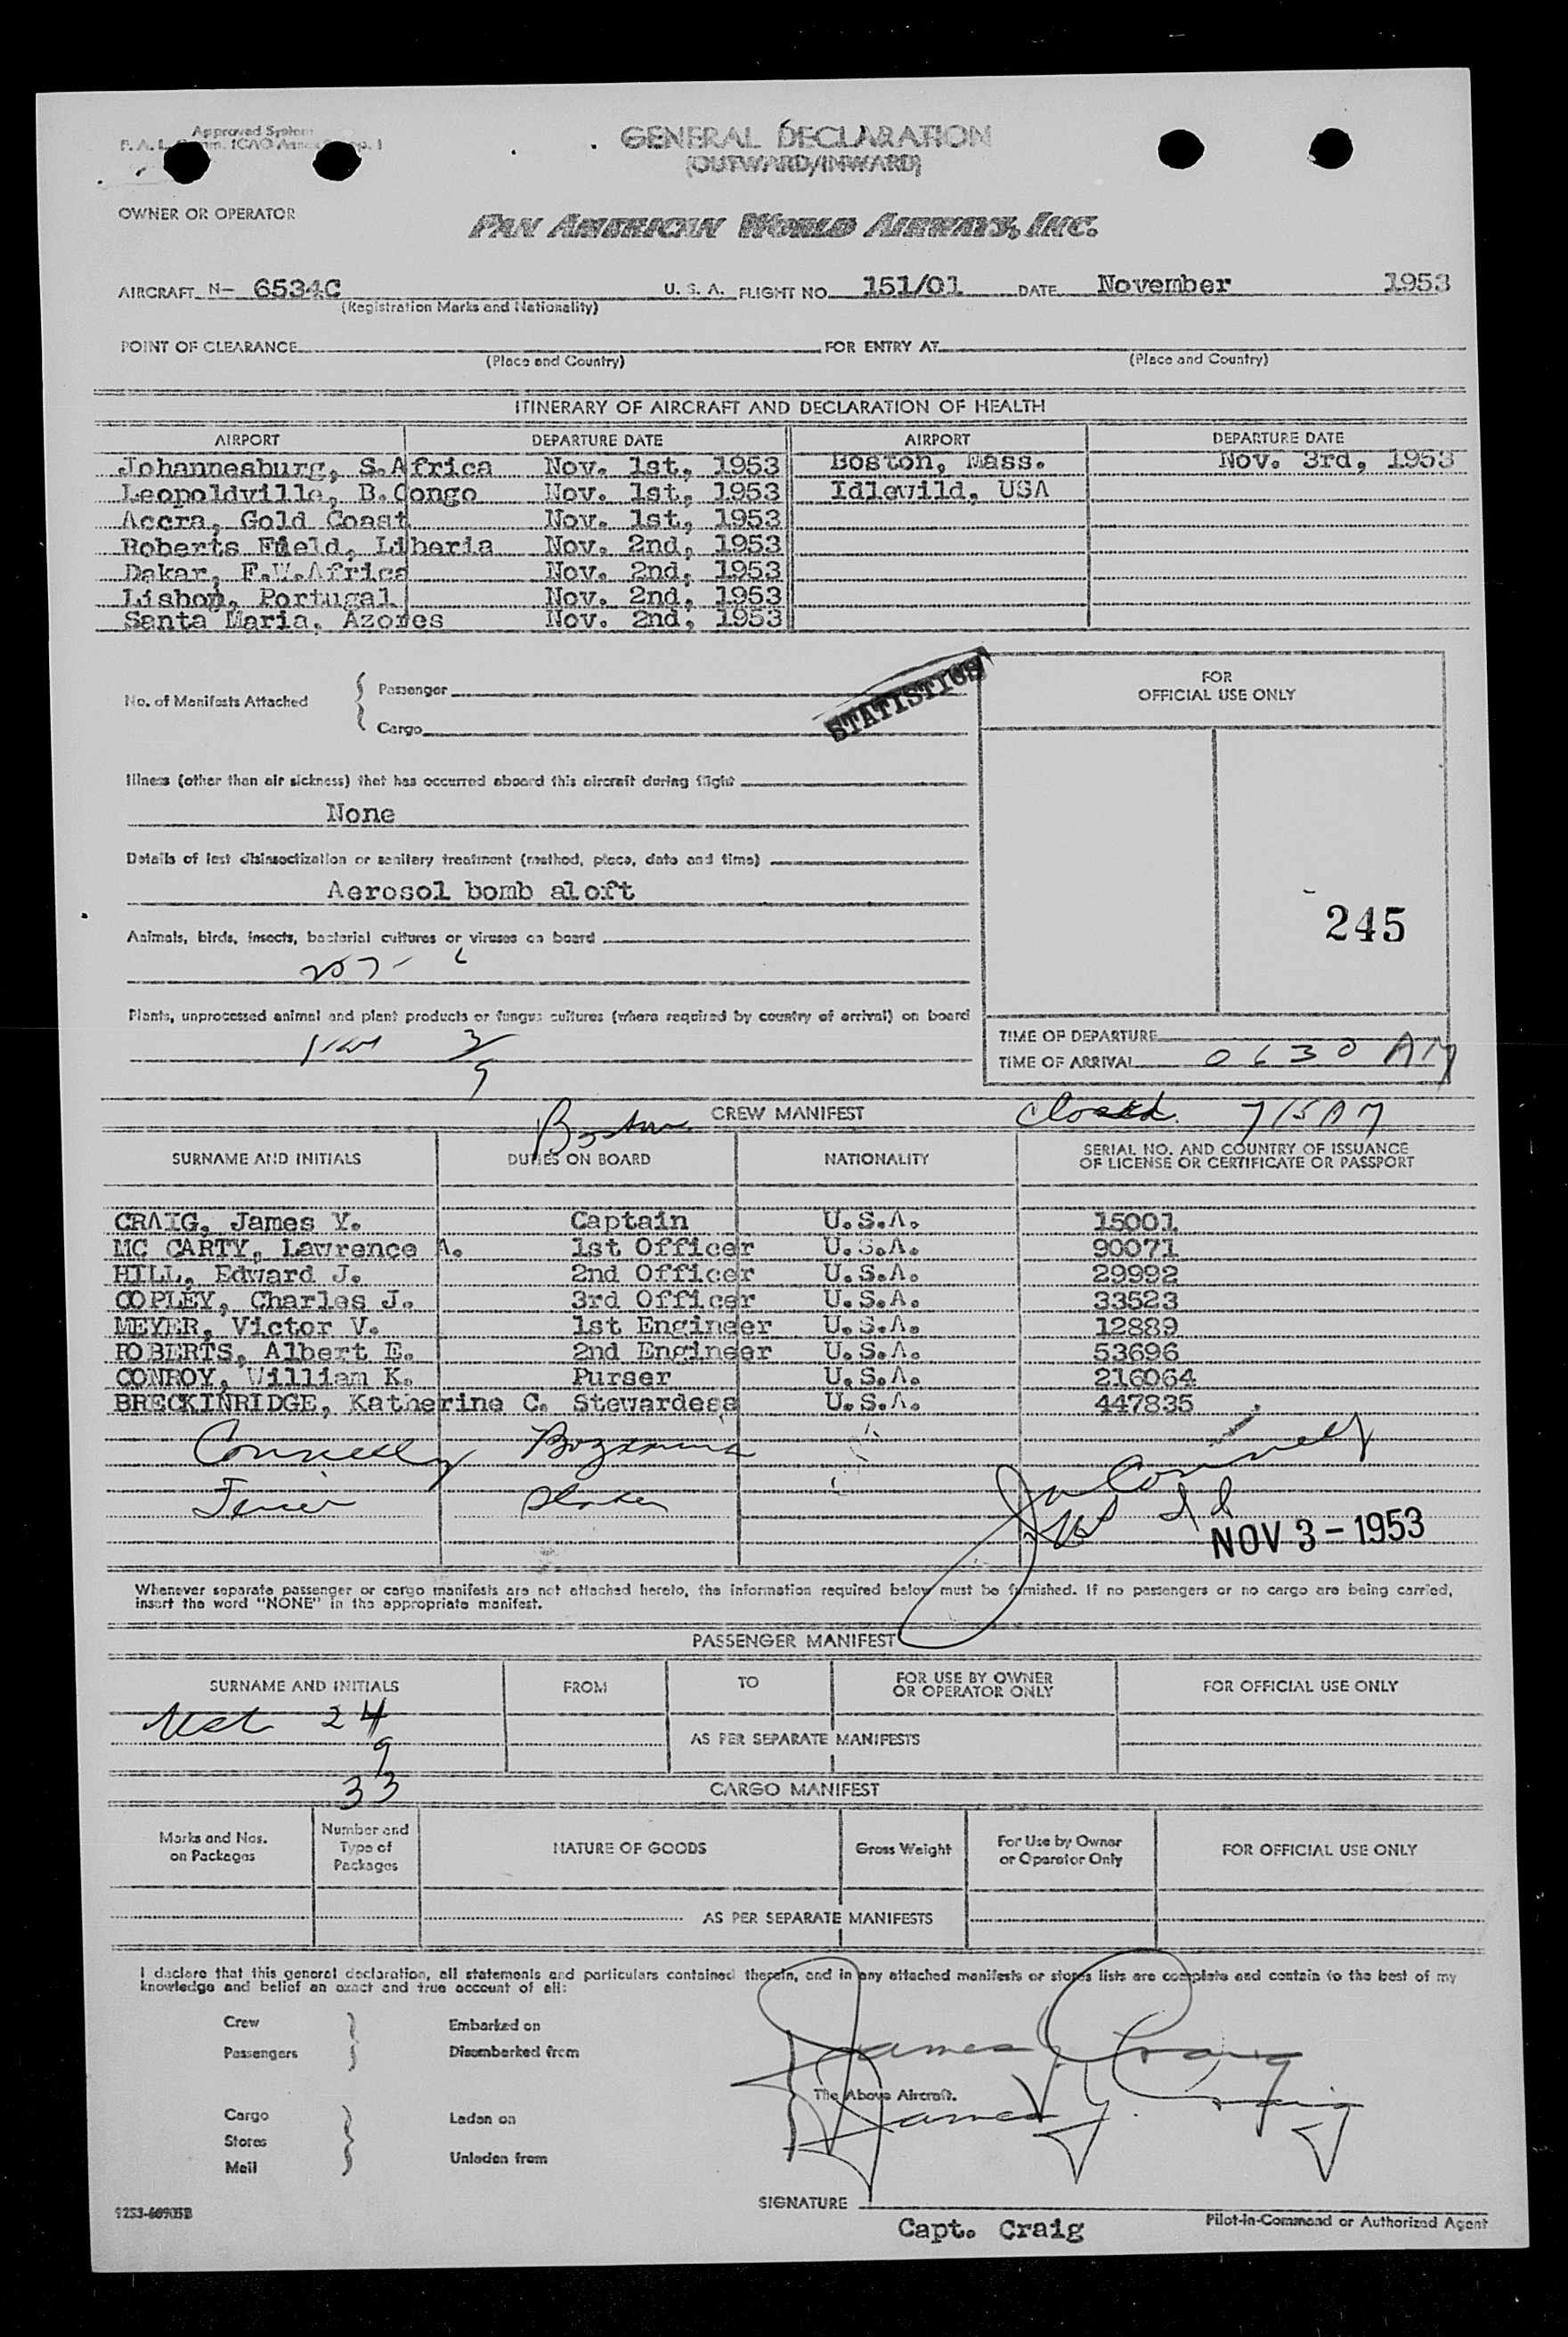 Approved System
GENERAL DECLARATION
(OUTWARD/INWARD)
OWNER OR OPERATOR
PAN AMERICAN WORLD AIRWAYS, INC.
AIRCRAFT N- 6534C U. S. A. FLIGHT NO. 151/01 DATE November 1953
(Registration Marks and Nationality)
POINT OF CLEARANCE FOR ENTRY AT
(Place and Country) (Place and Country)
ITINERARY OF AIRCRAFT AND DECLARATION OF HEALTH
AIRPORT DEPARTURE DATE AIRPORT DEPARTURE DATE
Johannesburg, S.Africa Nov. 1st, 1953 Boston, Mass. Nov. 3rd, 1953
Leopoldville, B.Congo Nov. 1st, 1953 Idlewild, USA
Accra, Gold Coast Nov. 1st, 1953
Roberts Field, Liberia Nov. 2nd, 1953
Dakar, F.W.Africa Nov. 2nd, 1953
Lisbon, Portugal Nov. 2nd, 1953
Santa Maria, Azores Nov. 2nd, 1953
STATISTICS
FOR
OFFICIAL USE ONLY
No. of Manifests Attached
Passenger
Cargo
Illness (other than air sickness) that has occurred aboard this aircraft during flight
None
Details of last disinsectization or sanitary treatment (method, place, date and time)
Aerosol bomb aloft
245
Animals, birds, insects, bacterial cultures or viruses on board
Plants, unprocessed animal and plant products or fungus cultures (where required by country of arrival) on board
TIME OF DEPARTURE
TIME OF ARRIVAL 0630 AM
Boston CREW MANIFEST Closed. 715AM
SURNAME AND INITIALS DUTIES ON BOARD NATIONALITY SERIAL NO. AND COUNTRY OF ISSUANCE
OF LICENSE OR CERTIFICATE OR PASSPORT
CRAIG, James Y. Captain U.S.A. 15001
MC CARTY, Lawrence A. 1st Officer U.S.A. 90071
HILL, Edward J. 2nd Officer U.S.A. 29992
COPLEY, Charles J. 3rd Officer U.S.A. 33523
MEYER, Victor V. 1st Engineer U.S.A. 12889
ROBERTS, Albert E. 2nd Engineer U.S.A. 53696
CONROY, William K. Purser U.S.A. 216064
BRECKINRIDGE, Katherine C. Stewardess U.S.A. 447835
Connelly
NOV 3 - 1953
Whenever separate passenger or cargo manifests are not attached hereto, the information required below must be furnished. If no passengers or no cargo are being carried,
insert the word "NONE" in the appropriate manifest.
PASSENGER MANIFEST
SURNAME AND INITIALS FROM TO FOR USE BY OWNER
OR OPERATOR ONLY FOR OFFICIAL USE ONLY
24
9
AS PER SEPARATE MANIFESTS
33
CARGO MANIFEST
Marks and Nos.
on Packages Number and
Type of
Packages NATURE OF GOODS Gross Weight For Use by Owner
or Operator Only FOR OFFICIAL USE ONLY
AS PER SEPARATE MANIFESTS
I declare that this general declaration, all statements and particulars contained therein, and in any attached manifests or stores lists are complete and contain to the best of my
knowledge and belief an exact and true account of all:
Crew Embarked on
Passengers Disembarked from
James Y. Craig
The Above Aircraft.
James Y. Craig
Cargo Laden on
Stores
Mail Unladen from
SIGNATURE
Capt. Craig
Pilot-in-Command or Authorized Agent